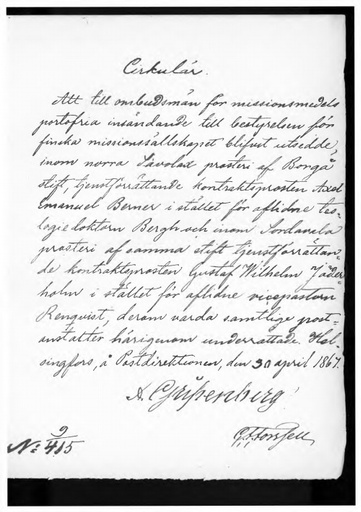 Cirkulär.
Att till ombudsmän för missionsmedels
portofria insändande till bestyrelsen för
finska missionssällskapet blifvit utsedde,
inom norra Savolax prosteri af Borgå
stift, tjenstförrättande kontraktsprosten Axel
Emanuel Berner i stället för aflidne teo-
logie doktorn Bergh och inom Sordavala
prosteri af samma stift tjenstförrättan-
de kontraktsprosten Gustaf Wilhelm Jäder-
holm i stället för aflidne vicepastorn
Renqvist, derom varda samtlige post-
anstalter härigenom underrättade. Hel-
singfors, å Postdirektionen, den 30 april 1867.
A. Gripenberg
No 9/415